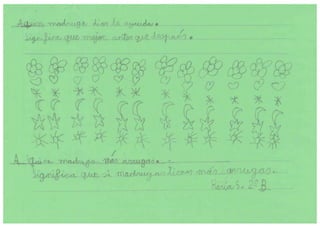 Aquien madruga dios le ayuda.
significa que mejor antes que después.
A quien madruga más arrugas.
significa que si madrugas tienes más arrugas.
María S. 2º B